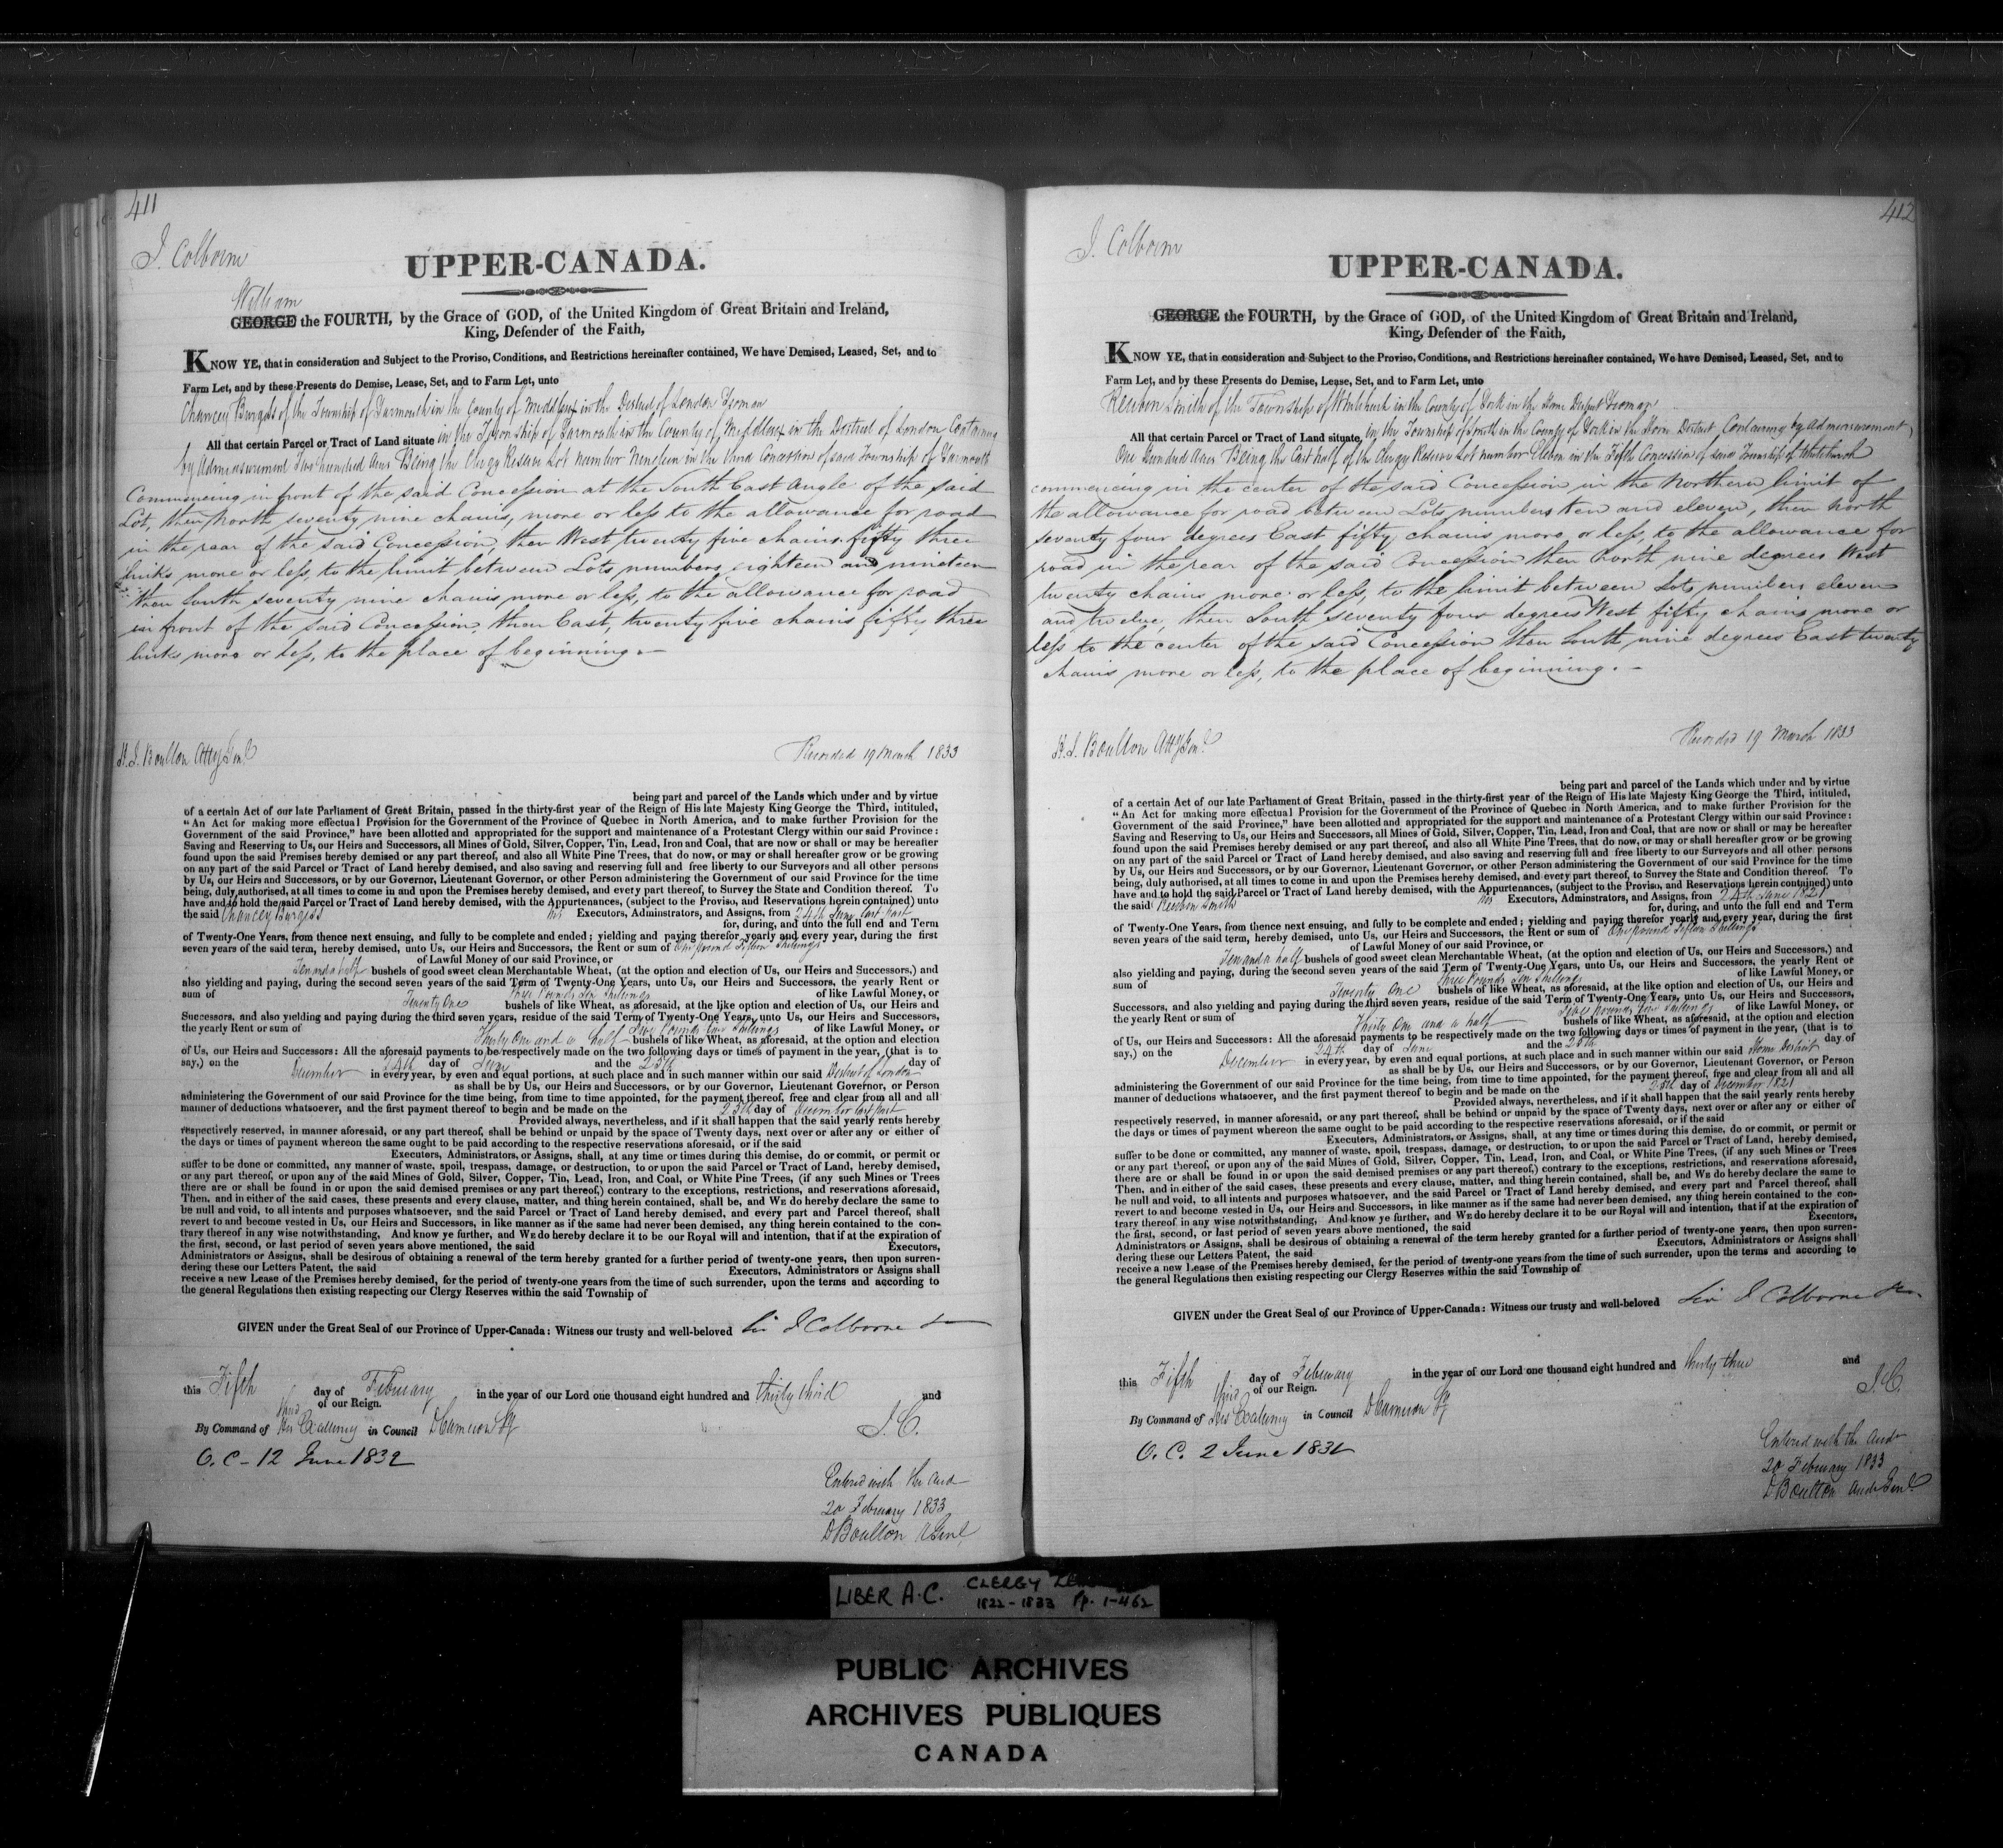 411
J. Colborne
UPPER-CANADA.
William
GEORGE the FOURTH, by the Grace of GOD, of the United Kingdom of Great Britain and Ireland,
King, Defender of the Faith,
KNOW YE, that in consideration and Subject to the Proviso, Conditions, and Restrictions hereinafter contained, We have Demised, Leased, Set, and to
Farm Let, and by these Presents do Demise, Lease, Set, and to Farm Let, unto
Chancey Burgess of the Township of Yarmouth in the County of Middlesex in the District of London Yeoman
All that certain Parcel or Tract of Land situate in the Township of Yarmouth in the County of Middlesex in the District of London Containing
by Admeasurement Two hundred Acres Being the Clergy Reserve Lot number Nineteen in the third Concession of said Township of Yarmouth
Commencing in front of the said Concession at the South East Angle of the said
Lot, then North seventy nine chains, more or less to the allowance for road
in the rear of the said Concession, then West twenty five chains fifty three
links more or less, to the limit between Lots numbers eighteen and nineteen
then South seventy nine chains more or less, to the allowance for road
in front of the said Concession, then East, twenty five chains fifty three
links more or less, to the place of beginning.
H. J. Boulton Atty Genl
Recorded 19 March 1833
being part and parcel of the Lands which under and by virtue
of a certain Act of our late Parliament of Great Britain, passed in the thirty-first year of the Reign of His late Majesty King George the Third, intituled,
"An Act for making more effectual Provision for the Government of the Province of Quebec in North America, and to make further Provision for the
Government of the said Province," have been allotted and appropriated for the support and maintenance of a Protestant Clergy within our said Province:
Saving and Reserving to Us, our Heirs and Successors, all Mines of Gold, Silver, Copper, Tin, Lead, Iron and Coal, that are now or shall or may be hereafter
found upon the said Premises hereby demised or any part thereof, and also all White Pine Trees, that do now, or may or shall hereafter grow or be growing
on any part of the said Parcel or Tract of Land hereby demised, and also saving and reserving full and free liberty to our Surveyors and all other persons
by Us, our Heirs and Successors, or by our Governor, Lieutenant Governor, or other Person administering the Government of our said Province for the time
being, duly authorised, at all times to come in and upon the Premises hereby demised, and every part thereof, to Survey the State and Condition thereof. To
have and to hold the said Parcel or Tract of Land hereby demised, with the Appurtenances, (subject to the Proviso, and Reservations herein contained) unto
the said Chancey Burgess his Executors, Adminstrators, and Assigns, from 24th June last past
for, during, and unto the full end and Term
of Twenty-One Years, from thence next ensuing, and fully to be complete and ended; yielding and paying therefor yearly and every year, during the first
seven years of the said term, hereby demised, unto Us, our Heirs and Successors, the Rent or sum of One pound Fifteen Shillings
of Lawful Money of our said Province, or
Ten and a half bushels of good sweet clean Merchantable Wheat, (at the option and election of Us, our Heirs and Successors,) and
also yielding and paying, during the second seven years of the said Term of Twenty-One Years, unto Us, our Heirs and Successors, the yearly Rent or
sum of Three Pounds Ten Shillings of like Lawful Money, or
Twenty One bushels of like Wheat, as aforesaid, at the like option and election of Us, our Heirs and
Successors, and also yielding and paying during the third seven years, residue of the said Term of Twenty-One Years, unto Us, our Heirs and Successors,
the yearly Rent or sum of Five Pounds five Shillings of like Lawful Money, or
Thirty One and a half bushels of like Wheat, as aforesaid, at the option and election
of Us, our Heirs and Successors: All the aforesaid payments to be respectively made on the two following days or times of payment in the year, (that is to
say,) on the 24th day of June and the 25th day of
December in every year, by even and equal portions, at such place and in such manner within our said District of London
as shall be by Us, our Heirs and Successors, or by our Governor, Lieutenant Governor, or Person
administering the Government of our said Province for the time being, from time to time appointed, for the payment thereof, free and clear from all and all
manner of deductions whatsoever, and the first payment thereof to begin and be made on the 25th day of December last past
Provided always, nevertheless, and if it shall happen that the said yearly rents hereby
respectively reserved, in manner aforesaid, or any part thereof, shall be behind or unpaid by the space of Twenty days, next over or after any or either of
the days or times of payment whereon the same ought to be paid according to the respective reservations aforesaid, or if the said
Executors, Administrators, or Assigns, shall, at any time or times during this demise, do or commit, or permit or
suffer to be done or committed, any manner of waste, spoil, trespass, damage, or destruction, to or upon the said Parcel or Tract of Land, hereby demised,
or any part thereof, or upon any of the said Mines of Gold, Silver, Copper, Tin, Lead, Iron, and Coal, or White Pine Trees, (if any such Mines or Trees
there are or shall be found in or upon the said demised premises or any part thereof,) contrary to the exceptions, restrictions, and reservations aforesaid,
Then, and in either of the said cases, these presents and every clause, matter, and thing herein contained, shall be, and WE do hereby declare the same to
be null and void, to all intents and purposes whatsoever, and the said Parcel or Tract of Land hereby demised, and every part and Parcel thereof, shall
revert to and become vested in Us, our Heirs and Successors, in like manner as if the same had never been demised, any thing herein contained to the con-
trary thereof in any wise notwithstanding, And know ye further, and WE do hereby declare it to be our Royal will and intention, that if at the expiration of
the first, second, or last period of seven years above mentioned, the said Executors,
Administrators or Assigns, shall be desirous of obtaining a renewal of the term hereby granted for a further period of twenty-one years, then upon surren-
dering these our Letters Patent, the said Executors, Administrators or Assigns shall
receive a new Lease of the Premises hereby demised, for the period of twenty-one years from the time of such surrender, upon the terms and according to
the general Regulations then existing respecting our Clergy Reserves within the said Township of
GIVEN under the Great Seal of our Province of Upper-Canada: Witness our trusty and well-beloved Sir J Colborne
this Fifth day of February in the year of our Lord one thousand eight hundred and thirty third and
third of our Reign.
J. C.
By Command of His Excellency in Council D Cameron
O. C - 12 June 1832
Entered with the Aud
20 February 1833
D Boulton A Genl
412
J. Colborne
UPPER-CANADA.
GEORGE the FOURTH, by the Grace of GOD, of the United Kingdom of Great Britain and Ireland,
King, Defender of the Faith,
KNOW YE, that in consideration and Subject to the Proviso, Conditions, and Restrictions hereinafter contained, We have Demised, Leased, Set, and to
Farm Let, and by these Presents do Demise, Lease, Set, and to Farm Let, unto
Reuben Smith of the Township of Whitchurch in the County of York in the Home District Yeoman
All that certain Parcel or Tract of Land situate, in the Township of in the County of York in the Home District, Containing by Admeasurement,
One Hundred Acres Being the East half of the Clergy Reserve Lot number Eleven in the Fifth Concession of said Township of Whitchurch
commencing in the center of the said Concession in the Northern limit of
the allowance for road between Lots numbers ten and eleven, then North
seventy four degrees East fifty chains more, or less, to the allowance for
road in the rear of the said Concession then North nine degrees West
twenty chains more or less, to the limit between Lots numbers eleven
and twelve, then South seventy four degrees West fifty chains more or
less to the center of the said Concession then South nine degrees East twenty
chains more or less, to the place of beginning.
H. J. Boulton Atty Genl
Recorded 19 March 1833
being part and parcel of the Lands which under and by virtue
of a certain Act of our late Parliament of Great Britain, passed in the thirty-first year of the Reign of His late Majesty King George the Third, intituled,
"An Act for making more effectual Provision for the Government of the Province of Quebec in North America, and to make further Provision for the
Government of the said Province," have been allotted and appropriated for the support and maintenance of a Protestant Clergy within our said Province:
Saving and Reserving to Us, our Heirs and Successors, all Mines of Gold, Silver, Copper, Tin, Lead, Iron and Coal, that are now or shall or may be hereafter
found upon the said Premises hereby demised or any part thereof, and also all White Pine Trees, that do now, or may or shall hereafter grow or be growing
on any part of the said Parcel or Tract of Land hereby demised, and also saving and reserving full and free liberty to our Surveyors and all other persons
by Us, our Heirs and Successors, or by our Governor, Lieutenant Governor, or other Person administering the Government of our said Province for the time
being, duly authorised, at all times to come in and upon the Premises hereby demised, and every part thereof, to Survey the State and Condition thereof. To
have and to hold the said Parcel or Tract of Land hereby demised, with the Appurtenances, (subject to the Proviso, and Reservations herein contained) unto
the said Reuben Smith his Executors, Adminstrators, and Assigns, from 24th June 1821
for, during, and unto the full end and Term
of Twenty-One Years, from thence next ensuing, and fully to be complete and ended; yielding and paying therefor yearly and every year, during the first
seven years of the said term, hereby demised, unto Us, our Heirs and Successors, the Rent or sum of One pound Fifteen Shillings
of Lawful Money of our said Province, or
Ten and a half bushels of good sweet clean Merchantable Wheat, (at the option and election of Us, our Heirs and Successors,) and
also yielding and paying, during the second seven years of the said Term of Twenty-One Years, unto Us, our Heirs and Successors, the yearly Rent or
sum of Three Pounds Ten Shillings of like Lawful Money, or
Twenty One bushels of like Wheat, as aforesaid, at the like option and election of Us, our Heirs and
Successors, and also yielding and paying during the third seven years, residue of the said Term of Twenty-One Years, unto Us, our Heirs and Successors,
the yearly Rent or sum of Five pounds five Shillings of like Lawful Money, or
Thirty One and a half bushels of like Wheat, as aforesaid, at the option and election
of Us, our Heirs and Successors: All the aforesaid payments to be respectively made on the two following days or times of payment in the year, (that is to
say,) on the 24th day of June and the 25th day of
December in every year, by even and equal portions, at such place and in such manner within our said Home District
as shall be by Us, our Heirs and Successors, or by our Governor, Lieutenant Governor, or Person
administering the Government of our said Province for the time being, from time to time appointed, for the payment thereof, free and clear from all and all
manner of deductions whatsoever, and the first payment thereof to begin and be made on the 25th day of December 1821
Provided always, nevertheless, and if it shall happen that the said yearly rents hereby
respectively reserved, in manner aforesaid, or any part thereof, shall be behind or unpaid by the space of Twenty days, next over or after any or either of
the days or times of payment whereon the same ought to be paid according to the respective reservations aforesaid, or if the said
Executors, Administrators, or Assigns, shall, at any time or times during this demise, do or commit, or permit or
suffer to be done or committed, any manner of waste, spoil, trespass, damage, or destruction, to or upon the said Parcel or Tract of Land, hereby demised,
or any part thereof, or upon any of the said Mines of Gold, Silver, Copper, Tin, Lead, Iron, and Coal, or White Pine Trees, (if any such Mines or Trees
there are or shall be found in or upon the said demised premises or any part thereof,) contrary to the exceptions, restrictions, and reservations aforesaid,
Then, and in either of the said cases, these presents and every clause, matter, and thing herein contained, shall be, and WE do hereby declare the same to
be null and void, to all intents and purposes whatsoever, and the said Parcel or Tract of Land hereby demised, and every part and Parcel thereof, shall
revert to and become vested in Us, our Heirs and Successors, in like manner as if the same had never been demised, any thing herein contained to the con-
trary thereof in any wise notwithstanding, And know ye further, and WE do hereby declare it to be our Royal will and intention, that if at the expiration of
the first, second, or last period of seven years above mentioned, the said Executors,
Administrators or Assigns, shall be desirous of obtaining a renewal of the term hereby granted for a further period of twenty-one years, then upon surren-
dering these our Letters Patent, the said Executors, Administrators or Assigns shall
receive a new Lease of the Premises hereby demised, for the period of twenty-one years from the time of such surrender, upon the terms and according to
the general Regulations then existing respecting our Clergy Reserves within the said Township of
GIVEN under the Great Seal of our Province of Upper-Canada: Witness our trusty and well-beloved Sir J Colborne
this Fifth day of February in the year of our Lord one thousand eight hundred and thirty three and
third of our Reign.
J. C.
By Command of His Excellency in Council D Cameron
O. C. 2 June 183
Entered with the Aud
20 February 1833
D Boulton Aud Genl
LIBER A.C. CLERGY
1822-1833 Pp. 1-462
PUBLIC ARCHIVES
ARCHIVES PUBLIQUES
CANADA